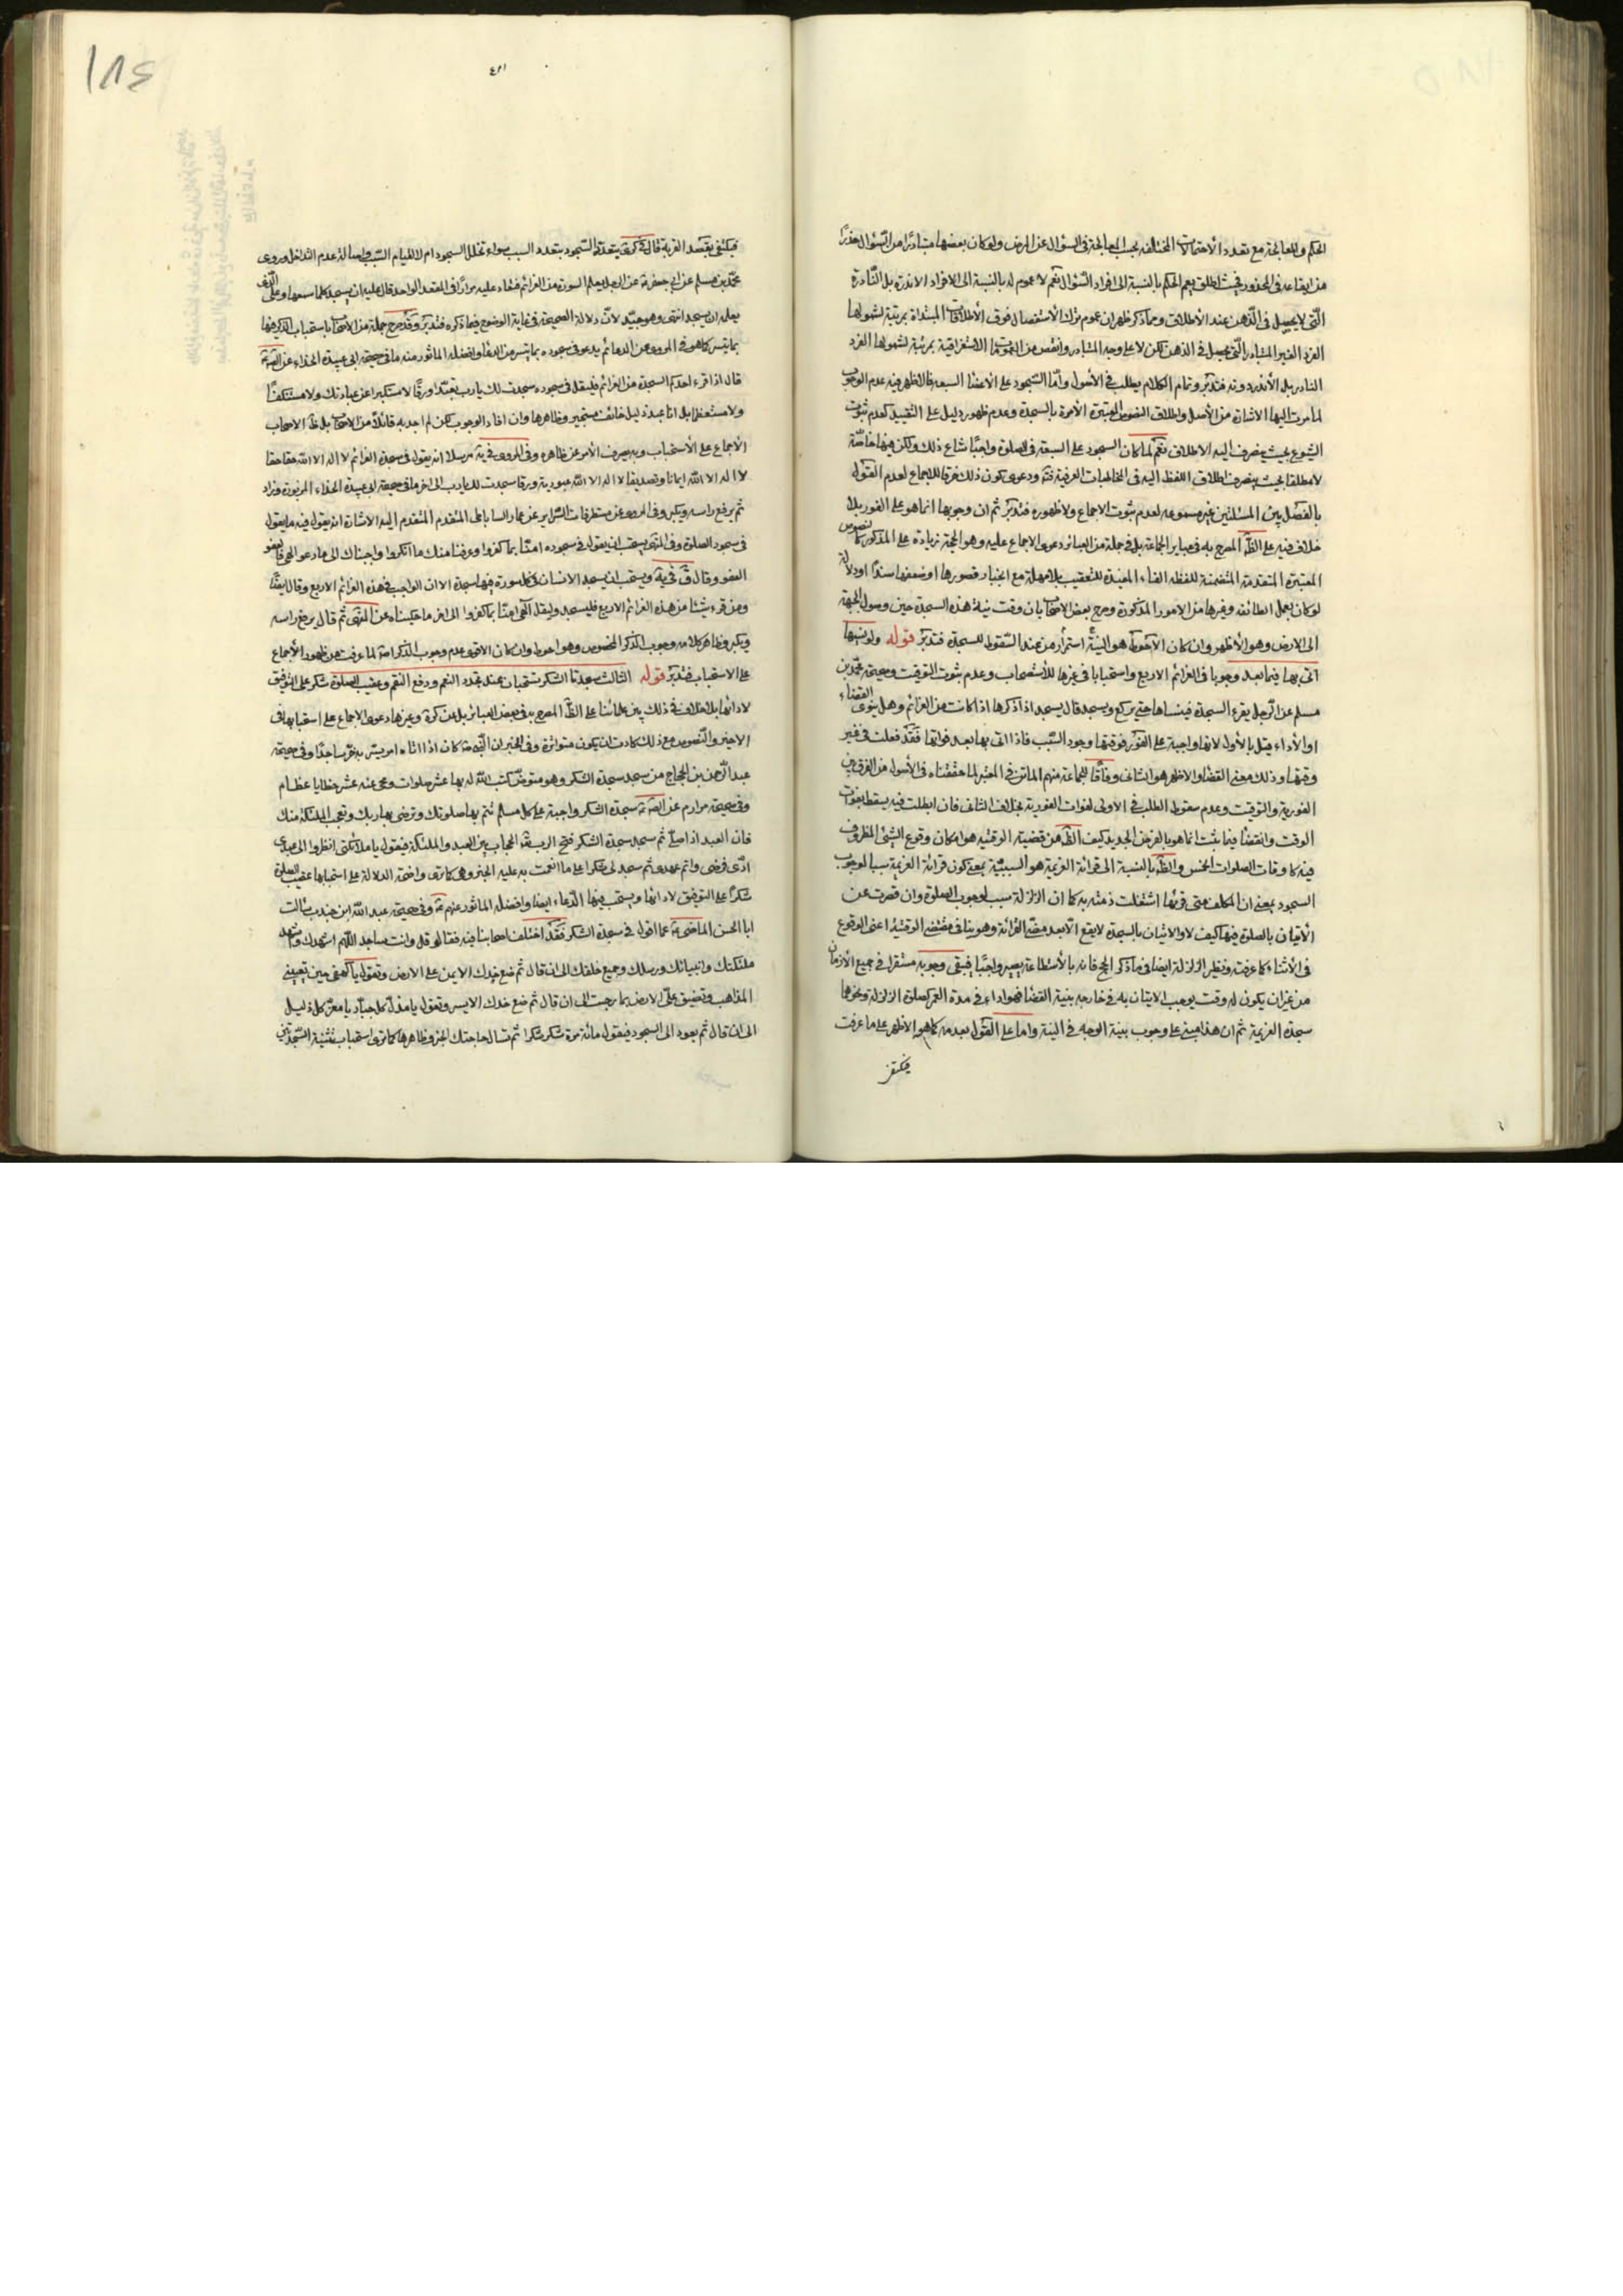 الحكم والمعالجة مع تعدد الاحتمالات المختلفه يجب المعالجة فى السؤال عن المرض ولو كان بعضها متبادرا من السؤال حذرا
من ايقاعه فى المحذور فحيث اطلق يعم الحكم بالنسبة الى افراد السؤال نعم لا عموم له بالنسبة الى الافراد الاندرة بل النادرة
التى لا يحصل فى الذهن عند الاطلاق ومما ذكر ظهر ان عموم ترك الاستفصال فوق الاطلاقات المبتداة بمرتبة لشمولها
الفرد الغير المتبادر التى يحصل فى الذهن لكن لا على وجه المتبادر وانقص من العمومات الاستغراقية بمرتبة لشمولها الفرد
النادر بل الأندر دونه فتدبر وتمام الكلام يطلب فى الأصول وأما السجود على الاعضا السبعه فالاظهر فيه عدم الوجوب
لما مرت اليها الاشارة من الأصل واطلاق النصوص المعتبرة الآمرة بالسجدة وعدم ظهور دليل على التقييد كعدم ثبوت
الشيوع بحيث ينصرف اليه الاطلاق نعم لما كان السجود على السبعة فى الصلوة واجبا شاع ذلك ولكن فيها خاصة
لا مطلقا بحيث ينصرف اطلاق اللفظ اليه فى المخاطبات العرفية ودعوى كون ذلك خرقا للاجماع لعدم القول
بالفصل بين المسئلتين غير مسموعه لعدم ثبوت الاجماع ولا ظهوره فتدبر ثم ان وجوبها انما هو على الفور بلا
خلاف فيه على الظ المصرح به فى عباير الجماعة بل فى جملة من العبائر دعوى الاجماع عليه وهو الحجة زيادة على المذكور كالنصوص
المعتبرة المتقدمة المتضمنة للفظه الفاء المفيدة للتعقيب بلا مهلة مع انجبار قصورها او ضعفها سندا او دلالة
لو كان بعمل الطائفه وغيرها من الامور المذكورة وصرح بعض الاصحاب بان وقت نية هذه السجدة حين وصول الجبهة
الى الارض وهو الأظهر وان كان الأحوط هو النية استمرارا من عند السقوط للسجدة فتدبر قوله ولو نسيها
اتى بها فيما بعد وجوبا فى العزائم الاربع واستحبابا فى غيرها للأستصحاب وعدم ثبوت التوقيت وصحيحة محمد بن
مسلم عن الرجل يقرء السجدة فينساها حتى يركع ويسجد قال يسجد اذا ذكرها اذا كانت من العزائم وهل ينوى القضاء
او الأداء قيل بالأول لانها واجبة على الفور فوقتها وجود السبب فاذا اتى بها بعد فواتها فقد فعلت فى غير
وقتها وذلك معنى القضا والاظهر هو الثانى وفاقا للجماعة منهم الماتن فى المعتبر لما حققناه فى الأصول من الفرق بين
الفورية والتوقيت وعدم سقوط الطلب فى الأولى لفوات الفورية بخلاف الثانى فان الطلب فيه يسقط بفوت
الوقت والقضا فيما يثبت انما هو بالفرض الجديد كيف الظ من قضية الوقتيه هو امكان وقوع الشئ المظروف
فيه كاوقات الصلوات الخمس والظ بالنسبة الى قرائة العزيمة هو السببية بمعنى كون قرائة العزيمة سببا لوجوب
السجود بمعنى ان المكلف متى قرئها اشتغلت ذمته به كما ان الزلزلة سبب لوجوب الصلوة وان قصرت عن
الأتيان بالصلوة فيها كيف لا والاتيان بالسجدة لا يقع الا بعد مضى القرائة وهو ينافى مقتضى الوقتية اعنى الوقوع
فى الأثناء كما عرفت ونظير الزلزلة ايضا فى ما ذكر الحج فانه بالأستطاعة يصير واجبا فيبقى وجوبه مستقرا فى جميع الأزمان
من غير ان يكون له وقت يوجب الايتان به فى خارجه بنية القضا فهو اداء فى مدة العمر كصلوة الزلزلة ونحوها
سجدة العزيمة ثم ان هذا مبنى على وجوب نية الوجه فى النية واما على القول بعدمه كما هو الاظهر على ما عرفت
فيكتفى
٤٢١
١٨٤
فيكتفى بقصد القربة قال فى كرى يتعدد السجود بتعدد السبب سواء تخلل السجود ام لا لقيام السبب واصالة عدم التداخل وروى
محمد بن مسلم عن ابى جعفر ع عن الرجل يعلم السورة من العزائم فتعاد عليه مرارا فى المقعد الواحد قال عليه ان يسجد كلما سمعها وعلى الذى
يعلمه ان يسجد انتهى وهو جيد لأن دلالة الصحيحة فى غاية الوضوح فيما ذكره فتدبر وقد صرح جملة من الاصحاب باستحباب الذكر فيها
بما تيسر كما هو فى المروى عن الدعائم يدعو فى سجوده بما تيسر من الدعا وافضله الماثور منه ما فى صحيحة ابى عبيدة الحذاء عن الص ع
قال اذا قرء احدكم السجدة من العزائم فليقل فى سجوده سجدت لك يارب تعبدا ورقا لا مستكبرا عن عبادتك ولا مستنكفا
ولا مستعظما بل انا عبد ذليل خائف مستجير وظاهرها وان افاد الوجوب لكن لم اجد به قائلا من الاصحاب بل ظ الاصحاب
الأجماع على الأستحباب وبه يصرف الأمر عن ظاهره وفى المروى فى يه مرسلا انه يقول فى سجدة العزائم لا اله الا الله حقا حقا
لا اله الا الله ايمانا وتصديقا لا اله الا الله عبودية ورقا سجدت لك يارب الى اخر ما فى صحيحة ابى عبيدة الحذاء المزبورة وزاد
ثم يرفع راسه ويكبر وفى المروى عن مستطرفات السراير عن عمار الساباطى المتقدم المتقدم اليه الاشارة انه يقول فيه ما يقول
فى سجود الصلوة وفى المنتهى يستحب ان يقول فى سجوده امنا بما كفروا وعرفنا منك ما انكروا واجبناك الى ما دعوا الهى فالعفو
العفو وقال ق فى يه ويستحب ان يسجد الانسان فى كل سورة فيها سجدة الا ان الواجب فى هذه العزائم الاربع وقال ايضا
ومن قرء شيئا من هذه العزائم الاربع فليسجد وليقل الهى امنا بما كفروا الى اخر ما حكيناه عن المنتهى ثم قال يرفع راسه
ويكبر وظاهر كلامه وجوب الذكر المخصوص وهو احوط وان كان الاقوى عدم وجوب الذكر اصلا لما عرفت من ظهور الأجماع
على الاستحباب فتدبر قوله الثالث سجدتا الشكر تستحبان عند تجدد النعم ودفع النقم وعقيب الصلوة شكر على التوفيق
لادائها بلا خلاف فى ذلك بين علمائنا على الظ المصرح به فى بعض العبائر بل عن كرة وغيرها دعوى الاجماع على استحبابها فى
الاخير والنصوص مع ذلك كادت ان يكون متواترة وفى الخبر ان النبى ص كان اذا اتاه امر يسر به خر ساجدا وفى صحيحة
عبد الرحمن بن الحجاج من سجد سجدة الشكر وهو متوضئ كتب الله له بها عشر صلوات ومحى عنه عشر خطايا عظام
وفى صحيحة مرازم عن الص ع سجدة الشكر واجبة على كل مسلم تتم بها صلوتك وترضى بها ربك وتعجب الملئكة منك
فان العبد اذا صلى ثم سجد سجدة الشكر فتح الرب تع الحجاب بين العبد والملئكة فيقول يا ملائكتى انظروا الى عبدى
ادى فرضى واتم عهدى ثم سجد لى شكرا على ما انعمت به عليه الخبر وهى كما ترى واضحة الدلالة على استحبابها عقيب الصلوة
شكرا على التوفيق لادائها ويستحب فيها الدعاء ايضا وافضله الماثور عنهم ع وفى صحيحة عبد الله ابن جندب سالت
ابا الحسن الماضى ع عما اقول فى سجدة الشكر فقد اختلف اصحابنا فيه فقال قل وانت ساجد اللهم اشهدك واشهد
ملئكتك وانبيائك ورسلك وجميع خلقك الى ان قال ثم ضع خدك الايمن على الارض وتقول يا كهفى حين تعيينى
المذاهب وتضيق على الارض بما رحبت الى ان قال ثم ضع خدك الايسر وتقول يا مذل كل جبار يا معز كل ذليل
الى ان قال ثم يعود الى السجود فيقول مائة مرة شكرا شكرا ثم تسال حاجتك الخبر وظاهرها كما ترى استحباب تثنية السجدتين